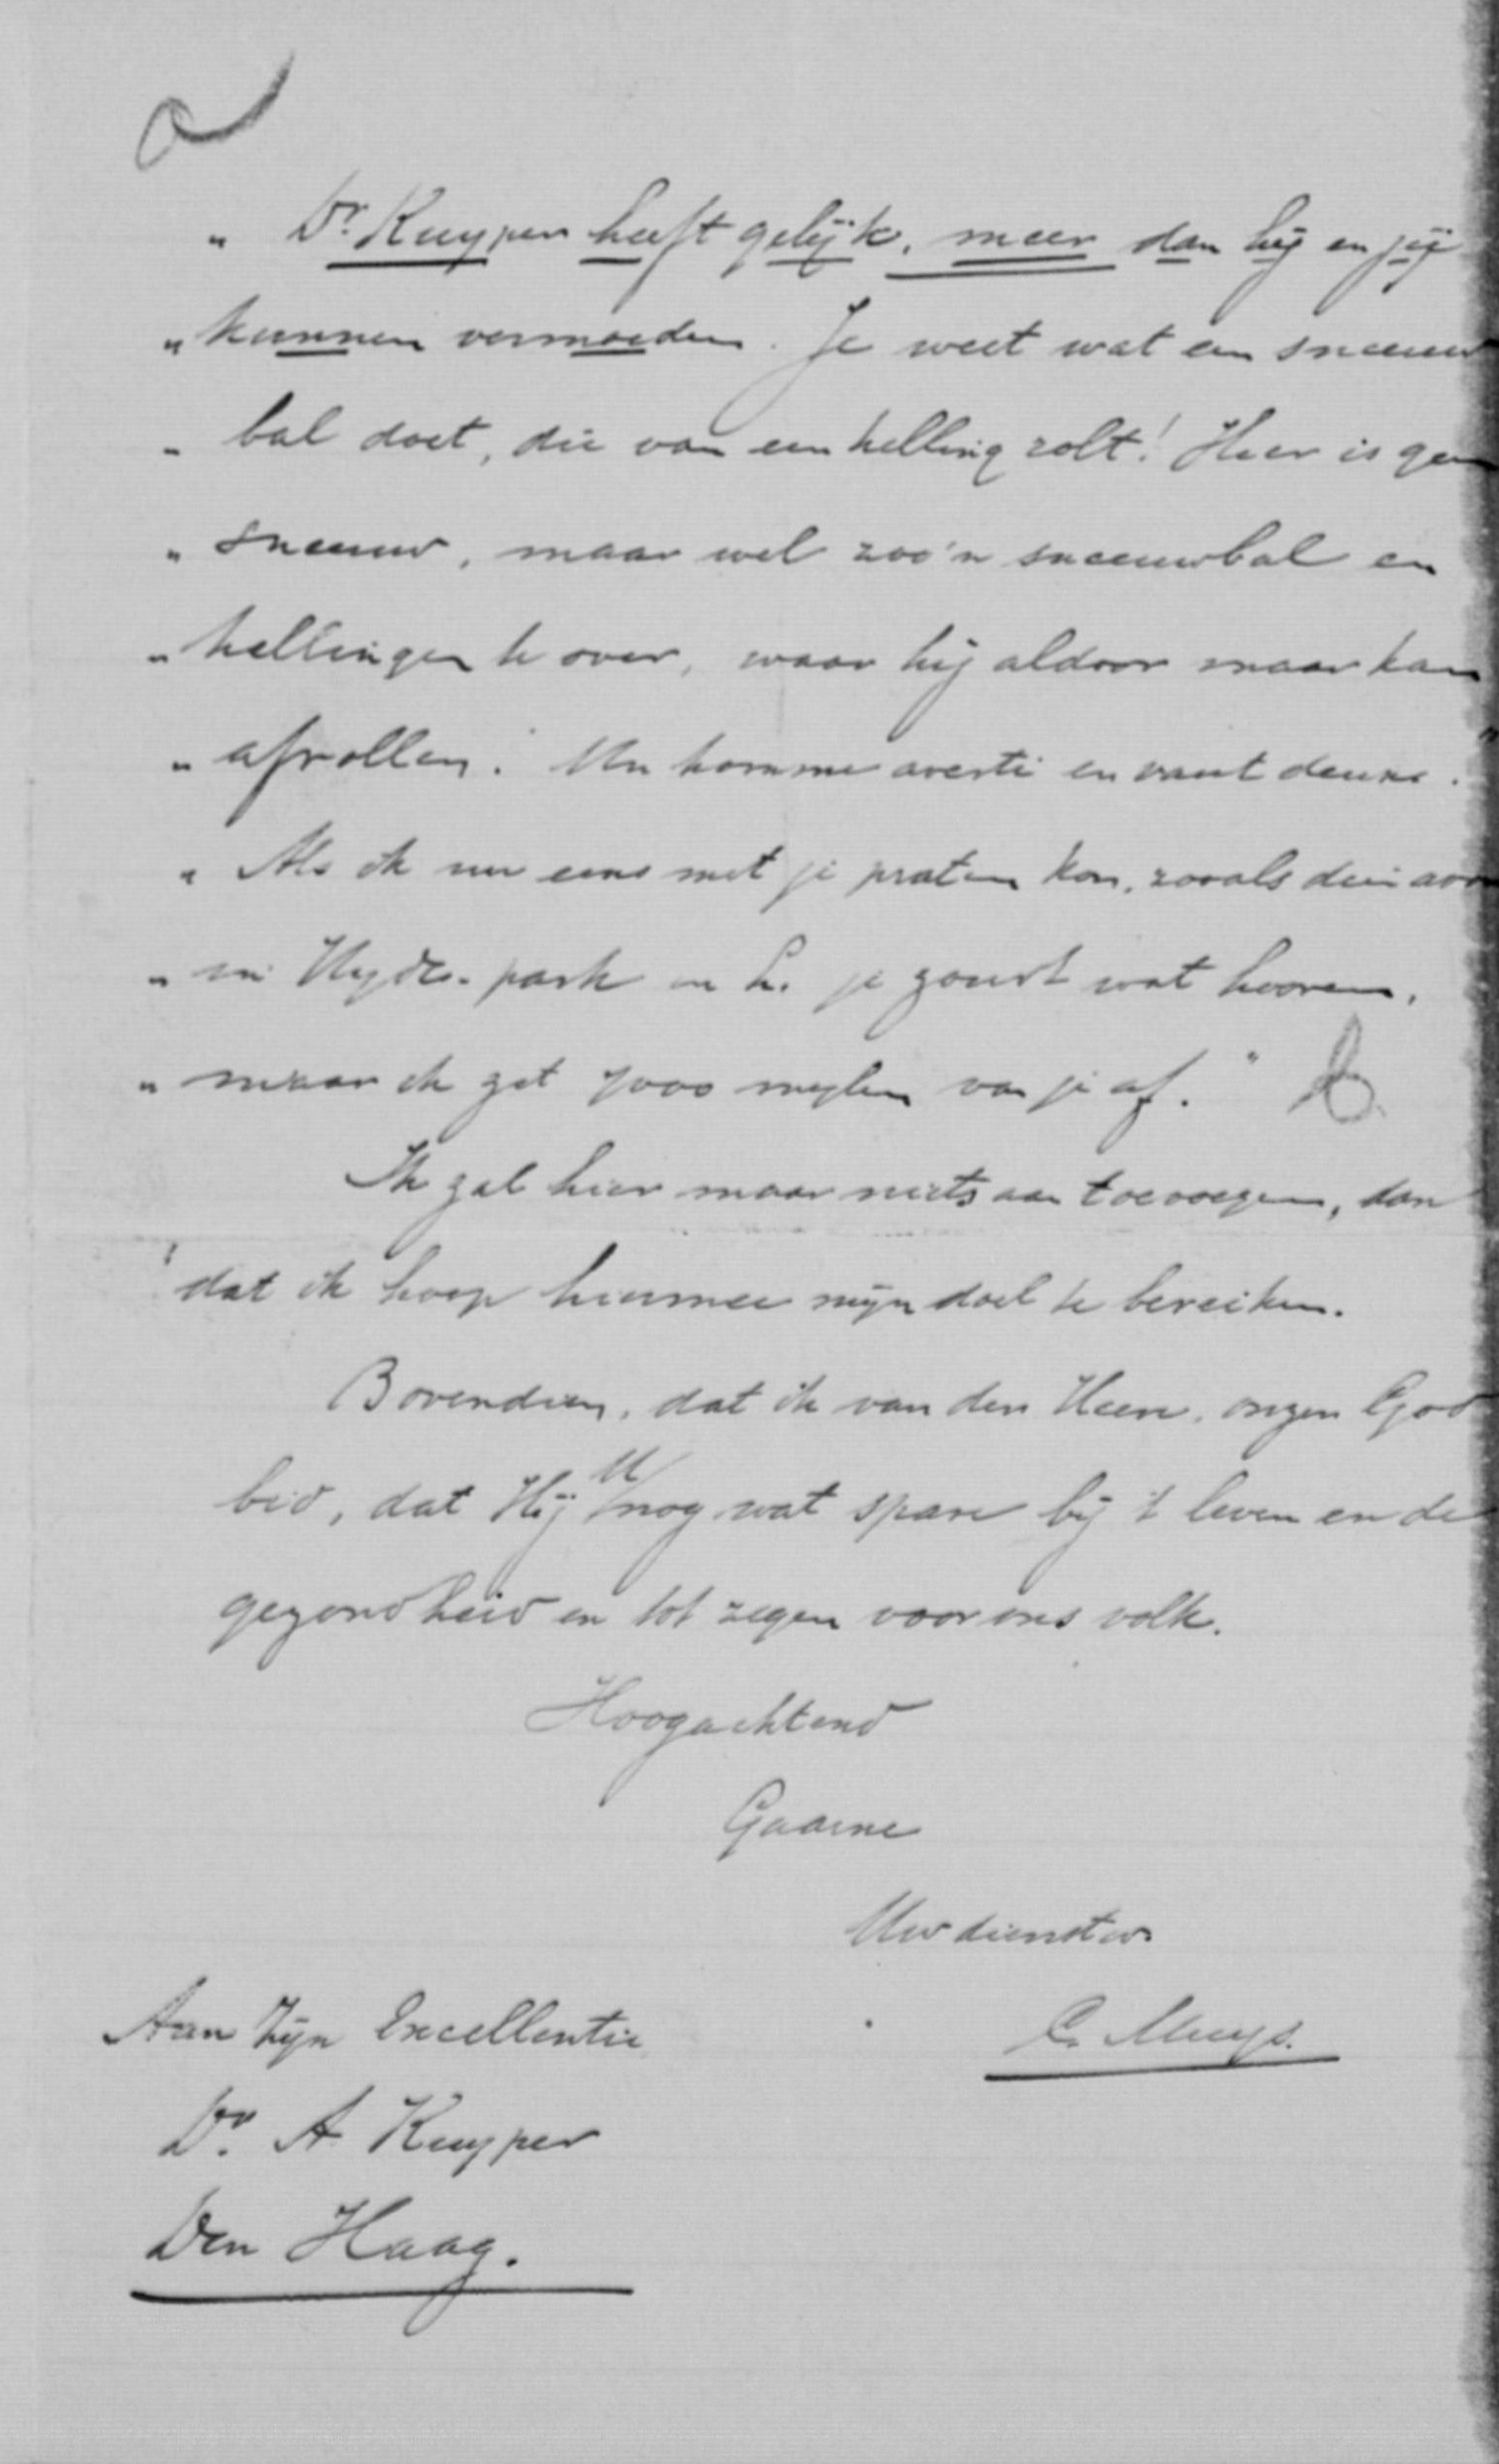 a
„ Dr. Kuyper heeft gelijk, meer dan hij en jij
„ kunnen vermoeden. Je weet wat een sneeuw
„ bal doet, die van een helling rolt! Hier is geen
„ sneeuw, maar wel zoo'n sneeuwbal en
„ hellingen te over, waar hij aldoor maar kan
„ afrollen. Un homme averti en vaut deux."
„ Als ik nu eens met je praten kon, zooals dien
„ in Hyde-park in L. je zoudt wat hooren,
„ maar ik zit 7000 mylen van je af." b.
Ik zal hier maar niets aan toevoegen, dan
dat ik hoop hiermee mijn doel te bereiken.
Bovendien, dat ik van den Heere, onzen God
bid, dat Hij U nog wat spare bij 't leven en de
gezondheid en tot zegen voor ons volk.
Hoogachtend
Gaarne
Uw dienstw.
Aan Zijn Excellentie
C. Muys.
Dr. A Kuyper
Den Haag.